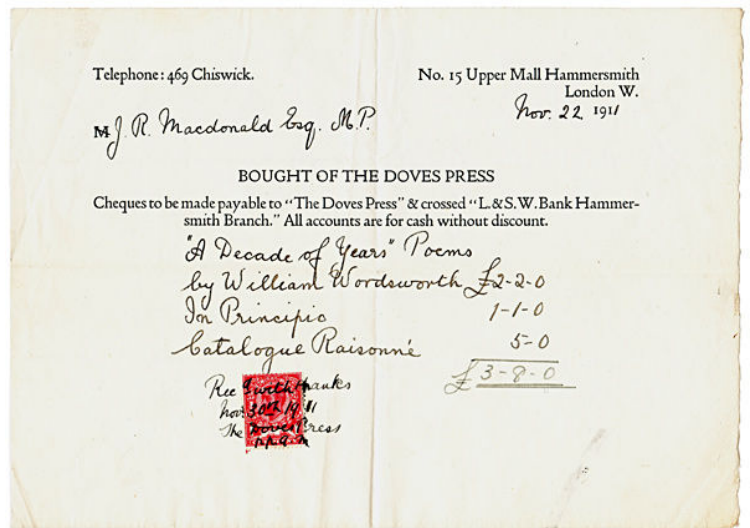 Telephone: 469 Chiswick.
No. 15 Upper Mall Hammersmith
London W.
Nov. 22 1911
M J. R. Macdonald Esq. M.P.
BOUGHT OF THE DOVES PRESS
Cheques to be made payable to "The Doves Press" & crossed "L. & S. W. Bank Hammer-
smith Branch." All accounts are for cash without discount.
"A Decade of Years" Poems
by William Wordsworth £2-2-0
In Principio 1-1-0
Catalogue Raisonné 5-0
£3-8-0
Rec'd with thanks
Nov: 30th 1911
The Doves Press